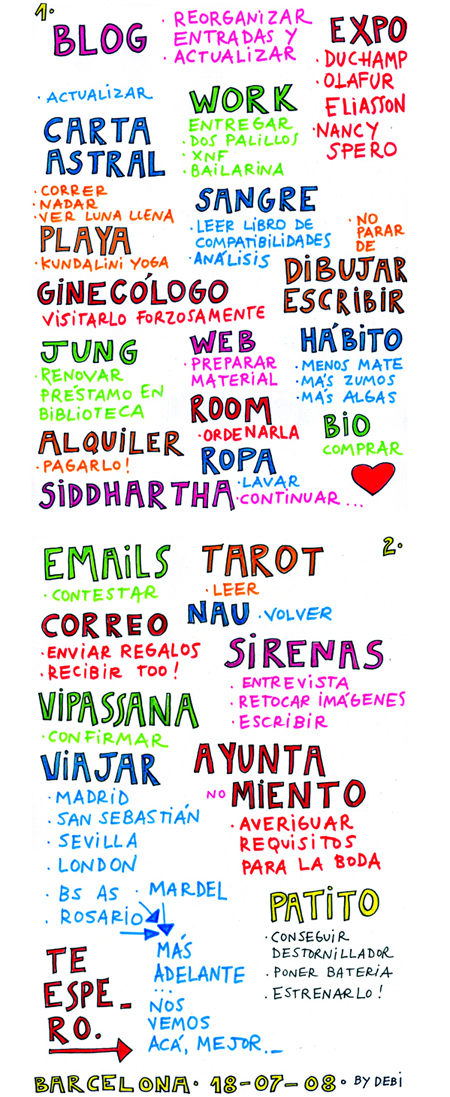 1.
BLOG
· REORGANIZAR
ENTRADAS Y
· ACTUALIZAR
EXPO
· DUCHAMP
· OLAFUR
ELIASSON
· NANCY
SPERO
· ACTUALIZAR
CARTA
ASTRAL
WORK
ENTREGAR
· DOS PALILLOS
· XNF
· BAILARINA
· CORRER
· NADAR
· VER LUNA LLENA
PLAYA
· KUNDALINI YOGA
SANGRE
· LEER LIBRO DE
COMPATIBILIDADES
· ANÁLISIS
· NO
PARAR
DE
DIBUJAR
ESCRIBIR
GINECÓLOGO
VISITARLO FORZOSAMENTE
JUNG
· RENOVAR
PRÉSTAMO EN
BIBLIOTECA
WEB
· PREPARAR
MATERIAL
HÁBITO
· MENOS MATE
· MÁS ZUMOS
· MÁS ALGAS
ROOM
· ORDENARLA
BIO
COMPRAR
ALQUILER
· PAGARLO!
ROPA
· LAVAR
SIDDHARTHA · CONTINUAR...
2.
EMAILS
· CONTESTAR
TAROT
· LEER
CORREO
· ENVIAR REGALOS
· RECIBIR TOO!
NAU · VOLVER
SIRENAS
· ENTREVISTA
· RETOCAR IMÁGENES
· ESCRIBIR
VIPASSANA
· CONFIRMAR
VIAJAR
· MADRID
· SAN SEBASTIÁN
· SEVILLA
· LONDON
· BS AS · MARDEL
· ROSARIO
MÁS
ADELANTE
...
NOS
VEMOS
ACÁ, MEJOR...
AYUNTA
NO MIENTO
· AVERIGUAR
REQUISITOS
PARA LA BODA
PATITO
· CONSEGUIR
DESTORNILLADOR
· PONER BATERIA
· ESTRENARLO!
TE
ESPE_
RO.
BARCELONA · 18-07-08 · BY DEBI